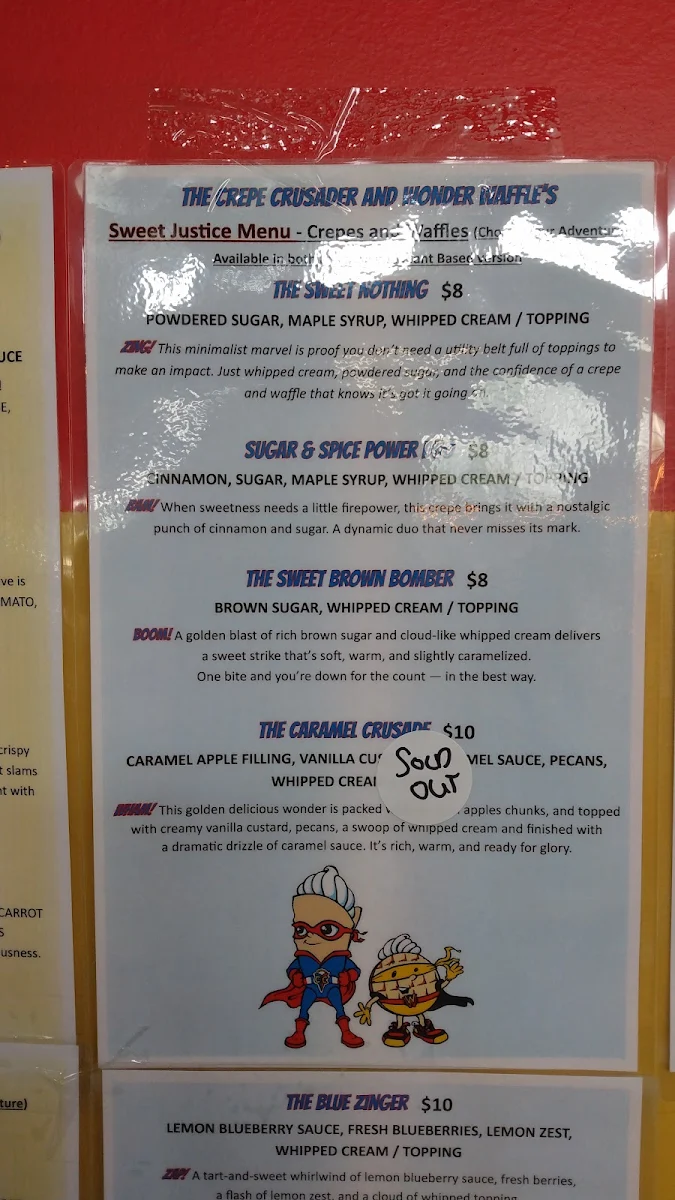 THE CREPE CRUSADER AND WONDER WAFFLE'S
Sweet Justice Menu - Crepes and Waffles
Available in both Based Version
THE SWEET NOTHING $8
POWDERED SUGAR, MAPLE SYRUP, WHIPPED CREAM / TOPPING
ZING! This minimalist marvel is proof you don't need a utility belt full of toppings to
make an impact. Just whipped cream, powdered sugar, and the confidence of a crepe
and waffle that knows it's got it going on.
SUGAR & SPICE POWER $8
CINNAMON, SUGAR, MAPLE SYRUP, WHIPPED CREAM / TOPPING
BAM! When sweetness needs a little firepower, this crepe brings it with a nostalgic
punch of cinnamon and sugar. A dynamic duo that never misses its mark.
THE SWEET BROWN BOMBER $8
BROWN SUGAR, WHIPPED CREAM / TOPPING
BOOM! A golden blast of rich brown sugar and cloud-like whipped cream delivers
a sweet strike that's soft, warm, and slightly caramelized.
One bite and you're down for the count — in the best way.
THE CARAMEL CRUSADE $10
CARAMEL APPLE FILLING, VANILLA SAUCE, PECANS,
WHIPPED
SOLD
OUT
WHAM! This golden delicious wonder is packed apples chunks, and topped
with creamy vanilla custard, pecans, a swoop of whipped cream and finished with
a dramatic drizzle of caramel sauce. It's rich, warm, and ready for glory.
THE BLUE ZINGER $10
LEMON BLUEBERRY SAUCE, FRESH BLUEBERRIES, LEMON ZEST,
WHIPPED CREAM / TOPPING
ZAP! A tart-and-sweet whirlwind of lemon blueberry sauce, fresh berries,
a flash of lemon zest, and a cloud of whipped topping.
UCE
E,
ve is
MATO,
crispy
t slams
nt with
CARROT
S
usness.
ture)